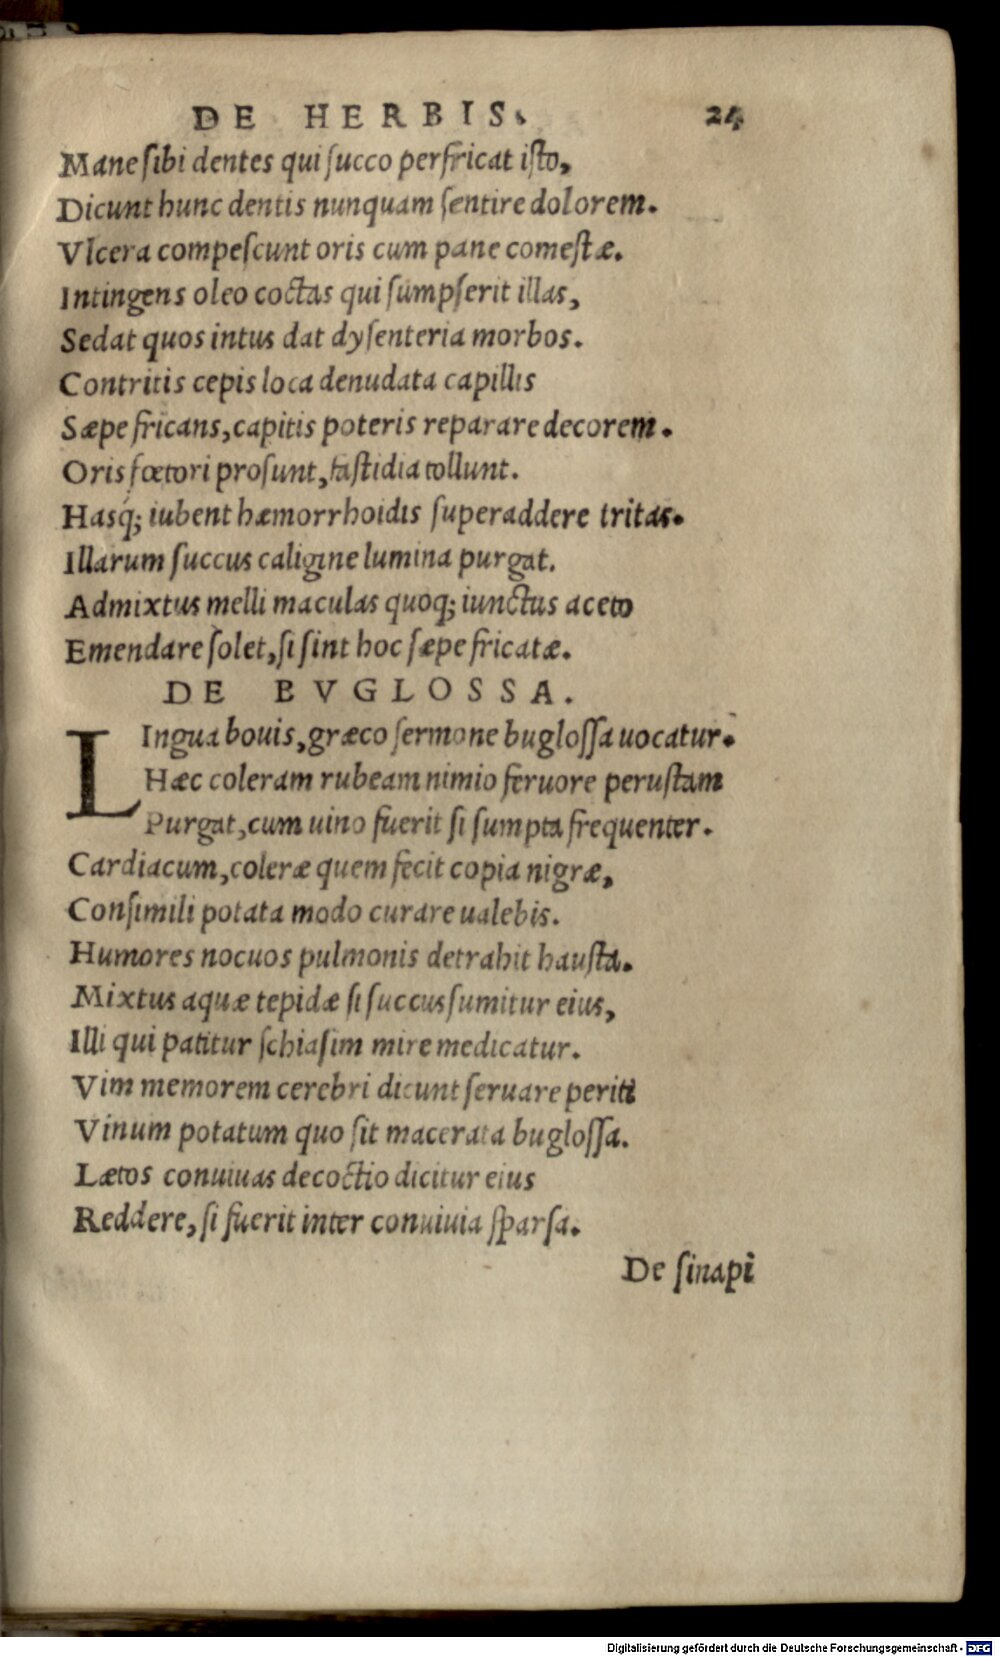 DE HERBIS. 24
Mane ſibi dentes qui ſucco perfricat iſto,
Dicunt hunc dentis nunquam ſentire dolorem.
Vlcera compeſcunt oris cum pane comeſtæ.
Intingens oleo coctas qui ſumpſerit illas,
Sedat quos intus dat dyſenteria morbos.
Contritis cepis loca denudata capillis
Sæpe fricans, capitis poteris reparare decorem.
Oris fœtori proſunt, faſtidia tollunt.
Hasq́; iubent hæmorrhoidis ſuperaddere tritas.
Illarum ſuccus caligine lumina purgat.
Admixtus melli maculas quoq; iunctus aceto
Emendare ſolet, ſi ſint hoc ſæpe fricatæ.
DE BVGLOSSA.
LIngua bouis, græco ſermone bugloſſa uocatur.
Hæc coleram rubeam nimio feruore peruſtam
Purgat, cum uino fuerit ſi ſumpta frequenter.
Cardiacum, coleræ quem fecit copia nigræ,
Conſimili potata modo curare ualebis.
Humores nocuos pulmonis detrahit hauſta.
Mixtus aquæ tepidæ ſi ſuccus ſumitur eius,
Illi qui patitur ſchiaſim mire medicatur.
Vim memorem cerebri dicunt ſeruare periti
Vinum potatum quo ſit macerata bugloſſa.
Lætos conuiuas decoctio dicitur eius
Reddere, ſi fuerit inter conuiuia ſparſa.
De ſinapi
Digitalisierung gefördert durch die Deutsche Forschungsgemeinschaft - DFG